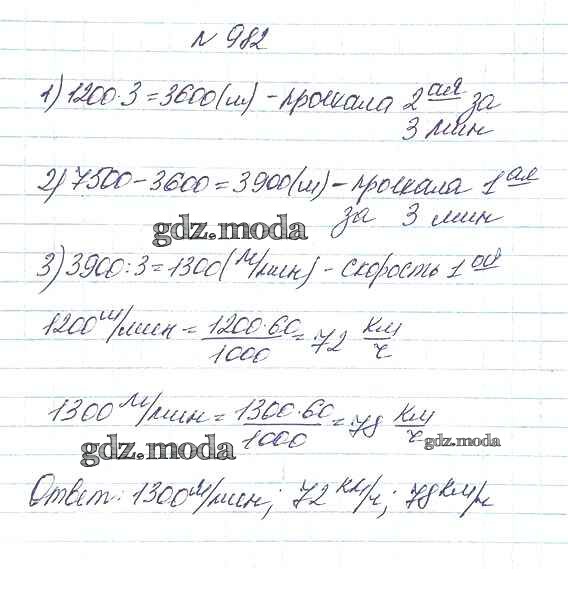 N 982
1) 1200·3=3600(м) - проехала 2 ая за
3 мин
2) 7500-3600=3900(м) - проехала 1 ая
за 3 мин
gdz.moda
3) 3900:3=1300(м/мин) - скорость 1 ой
1200 м/мин = 1200·60/1000 = 72 км/ч
1300 м/мин = 1300·60/1000 = 78 км/ч
gdz.moda
gdz.moda
Ответ: 1300 м/мин; 72 км/ч; 78 км/ч